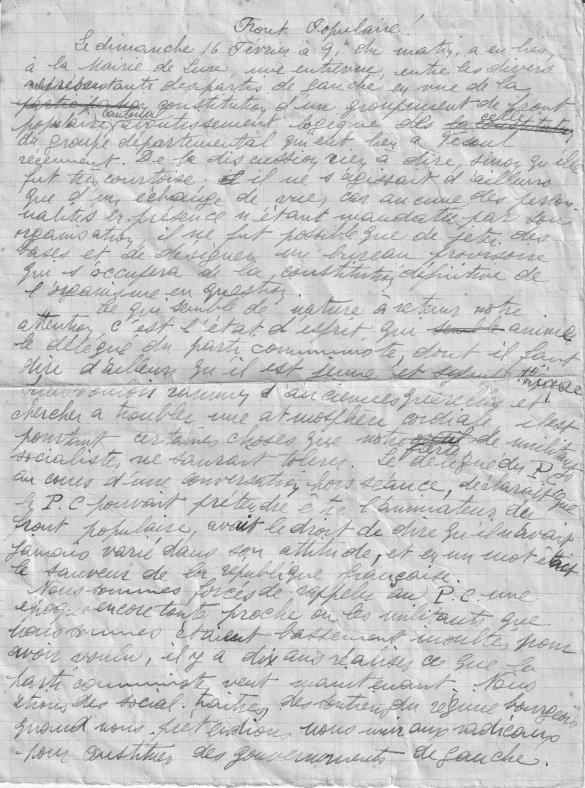 Front Populaire !
Le dimanche 16 Février à 9h du matin, a eu lieu
à la Mairie de Lure, une entrevue, entre les divers
représentants des partis de gauche en vue de la
constitution d'un groupement de Front
populaire cantonal aboutissement logique des celle
du groupe départemental qui eut lieu à Vesoul
récemment. De la discussion rien à dire, sinon qu'elle
fut très courtoise. il ne s'agissait d'ailleurs
que d'un échange de vues, car aucune des person-
nalités en présence n'étant mandatée par son
organisation, il ne fut possible que de jeter des
bases et de désigner un bureau provisoire
qui s'occupera de la constitution définitive de
l'organisme en question.
Ce qui semble de nature à retenir notre
attention, c'est l'état d'esprit qui anime
le délégué du parti communiste, dont il faut
dire d'ailleurs qu'il est jeune et
voulois ranimer d'anciennes querelles et
chercher à troubler une atmosphère cordiale il est
pourtant certaines choses que notre parti de militants
socialistes ne saurait tolérer. Le délégué du P.C.
au cours d'une conversation hors séance, déclarait que
le P.C pouvait prétendre être l'animateur du
front populaire, avait le droit de dire qu'il n'avait
jamais varié dans son attitude, et en un mot était
le sauveur de la république française.
Nous sommes forcés de rappeler au P.C une
époque encore toute proche ou les militants que
nous sommes étaient bassement insultés, pour
avoir voulu, il y a dix ans réaliser ce que le
parti communiste veut maintenant. Nous
étions des social-traitres, des soutiens du régime bourgeois
quand nous prétendions nous unir aux radicaux
pour constituer des gouvernements de gauche.